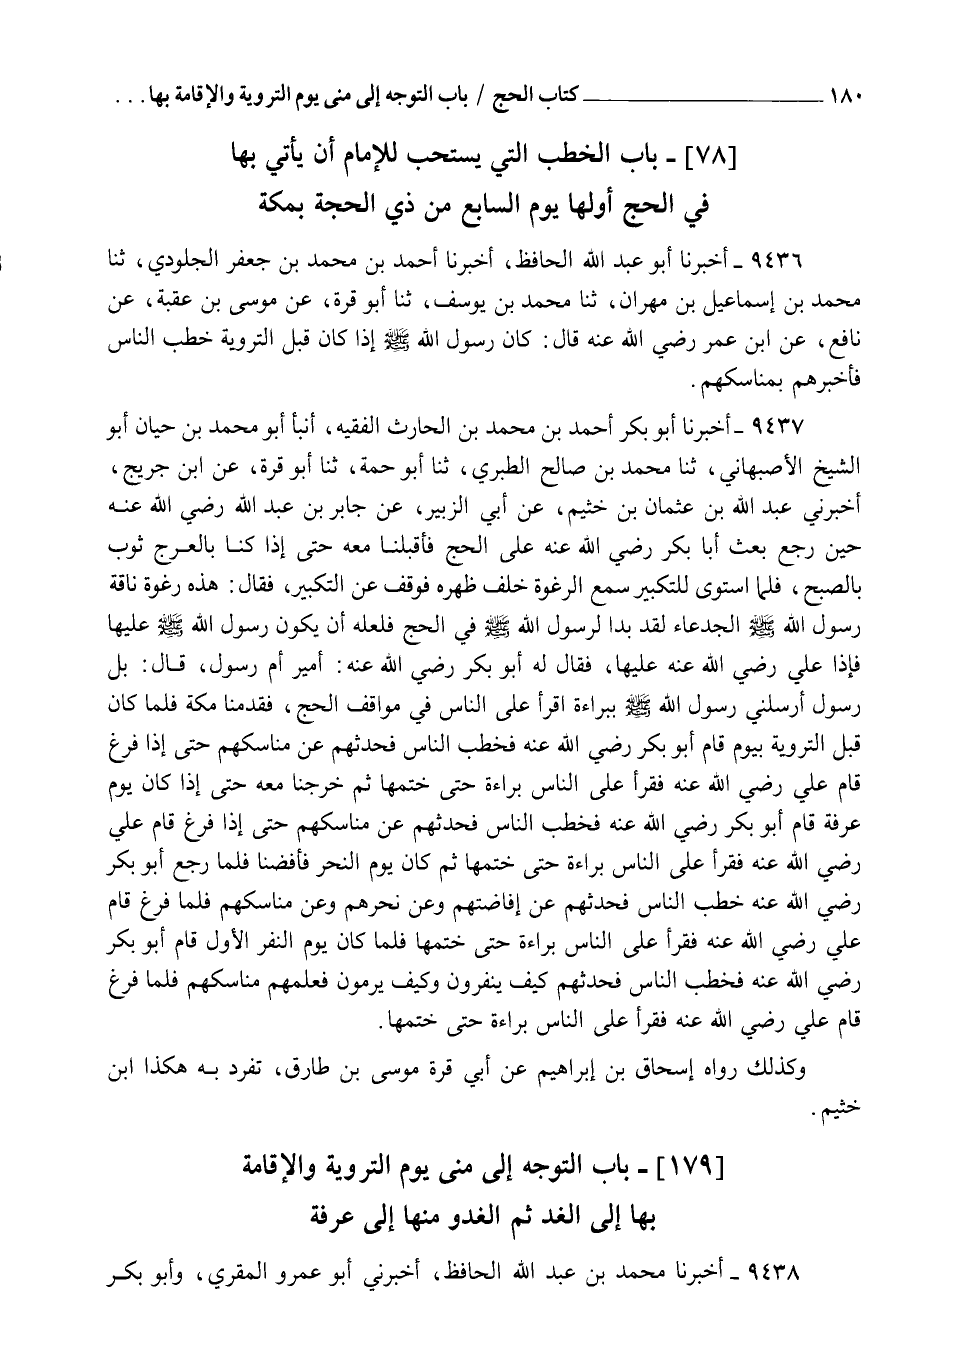 ١٨٠ ــــــــــــــــــــ كتاب الحج / باب التوجه إلى منى يوم التروية والإقامة بها . . .
[٧٨] ـ باب الخطب التي يستحب للإمام أن يأتي بها
في الحج أولها يوم السابع من ذي الحجة بمكة
٩٤٣٦ ـ أخبرنا أبو عبد الله الحافظ، أخبرنا أحمد بن محمد بن جعفر الجلودي، ثنا
محمد بن إسماعيل بن مهران، ثنا محمد بن يوسف، ثنا أبو قرة، عن موسى بن عقبة، عن
نافع، عن ابن عمر رضي الله عنه قال: كان رسول الله ﷺ إذا كان قبل التروية خطب الناس
فأخبرهم بمناسكهم.
٩٤٣٧ ـ أخبرنا أبو بكر أحمد بن محمد بن الحارث الفقيه، أنبأ أبو محمد بن حيان أبو
الشيخ الأصبهاني، ثنا محمد بن صالح الطبري، ثنا أبو حمة، ثنا أبو قرة، عن ابن جريج،
أخبرني عبد الله بن عثمان بن خثيم، عن أبي الزبير، عن جابر بن عبد الله رضي الله عنه
حين رجع بعث أبا بكر رضي الله عنه على الحج فأقبلنا معه حتى إذا كنا بالعرج ثوب
بالصبح، فلما استوى للتكبير سمع الرغوة خلف ظهره فوقف عن التكبير، فقال: هذه رغوة ناقة
رسول الله ﷺ الجدعاء لقد بدا لرسول الله ﷺ في الحج فلعله أن يكون رسول الله ﷺ عليها
فإذا علي رضي الله عنه عليها، فقال له أبو بكر رضي الله عنه: أمير أم رسول، قال: بل
رسول أرسلني رسول الله ﷺ ببراءة اقرأ على الناس في مواقف الحج، فقدمنا مكة فلما كان
قبل التروية بيوم قام أبو بكر رضي الله عنه فخطب الناس فحدثهم عن مناسكهم حتى إذا فرغ
قام علي رضي الله عنه فقرأ على الناس براءة حتى ختمها ثم خرجنا معه حتى إذا كان يوم
عرفة قام أبو بكر رضي الله عنه فخطب الناس فحدثهم عن مناسكهم حتى إذا فرغ قام علي
رضي الله عنه فقرأ على الناس براءة حتى ختمها ثم كان يوم النحر فأفضنا فلما رجع أبو بكر
رضي الله عنه خطب الناس فحدثهم عن إفاضتهم وعن نحرهم وعن مناسكهم فلما فرغ قام
علي رضي الله عنه فقرأ على الناس براءة حتى ختمها فلما كان يوم النفر الأول قام أبو بكر
رضي الله عنه فخطب الناس فحدثهم كيف ينفرون وكيف يرمون فعلمهم مناسكهم فلما فرغ
قام علي رضي الله عنه فقرأ على الناس براءة حتى ختمها.
وكذلك رواه إسحاق بن إبراهيم عن أبي قرة موسى بن طارق، تفرد به هكذا ابن
خثيم.
[١٧٩] ـ باب التوجه إلى منى يوم التروية والإقامة
بها إلى الغد ثم الغدو منها إلى عرفة
٩٤٣٨ ـ أخبرنا محمد بن عبد الله الحافظ، أخبرني أبو عمرو المقري، وأبو بكر